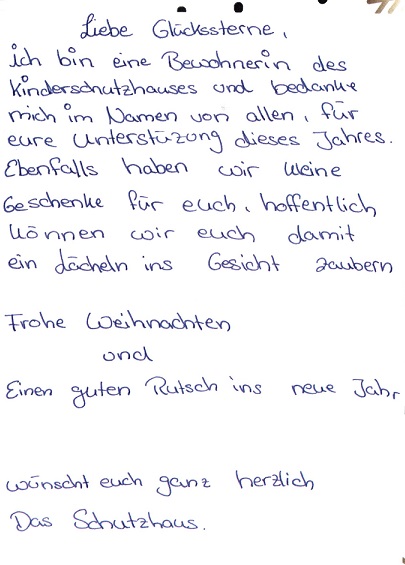 Liebe Glückssterne,
ich bin eine Bewohnerin des
Kinderschutzhauses und bedanke
mich im Namen von allen, für
eure Unterstüzung dieses Jahres.
Ebenfalls haben wir kleine
Geschenke für euch, hoffentlich
können wir euch damit
ein Lächeln ins Gesicht zaubern
Frohe Weihnachten
und
Einen guten Rutsch ins neue Jahr,
wünscht euch ganz herzlich
Das Schutzhaus.